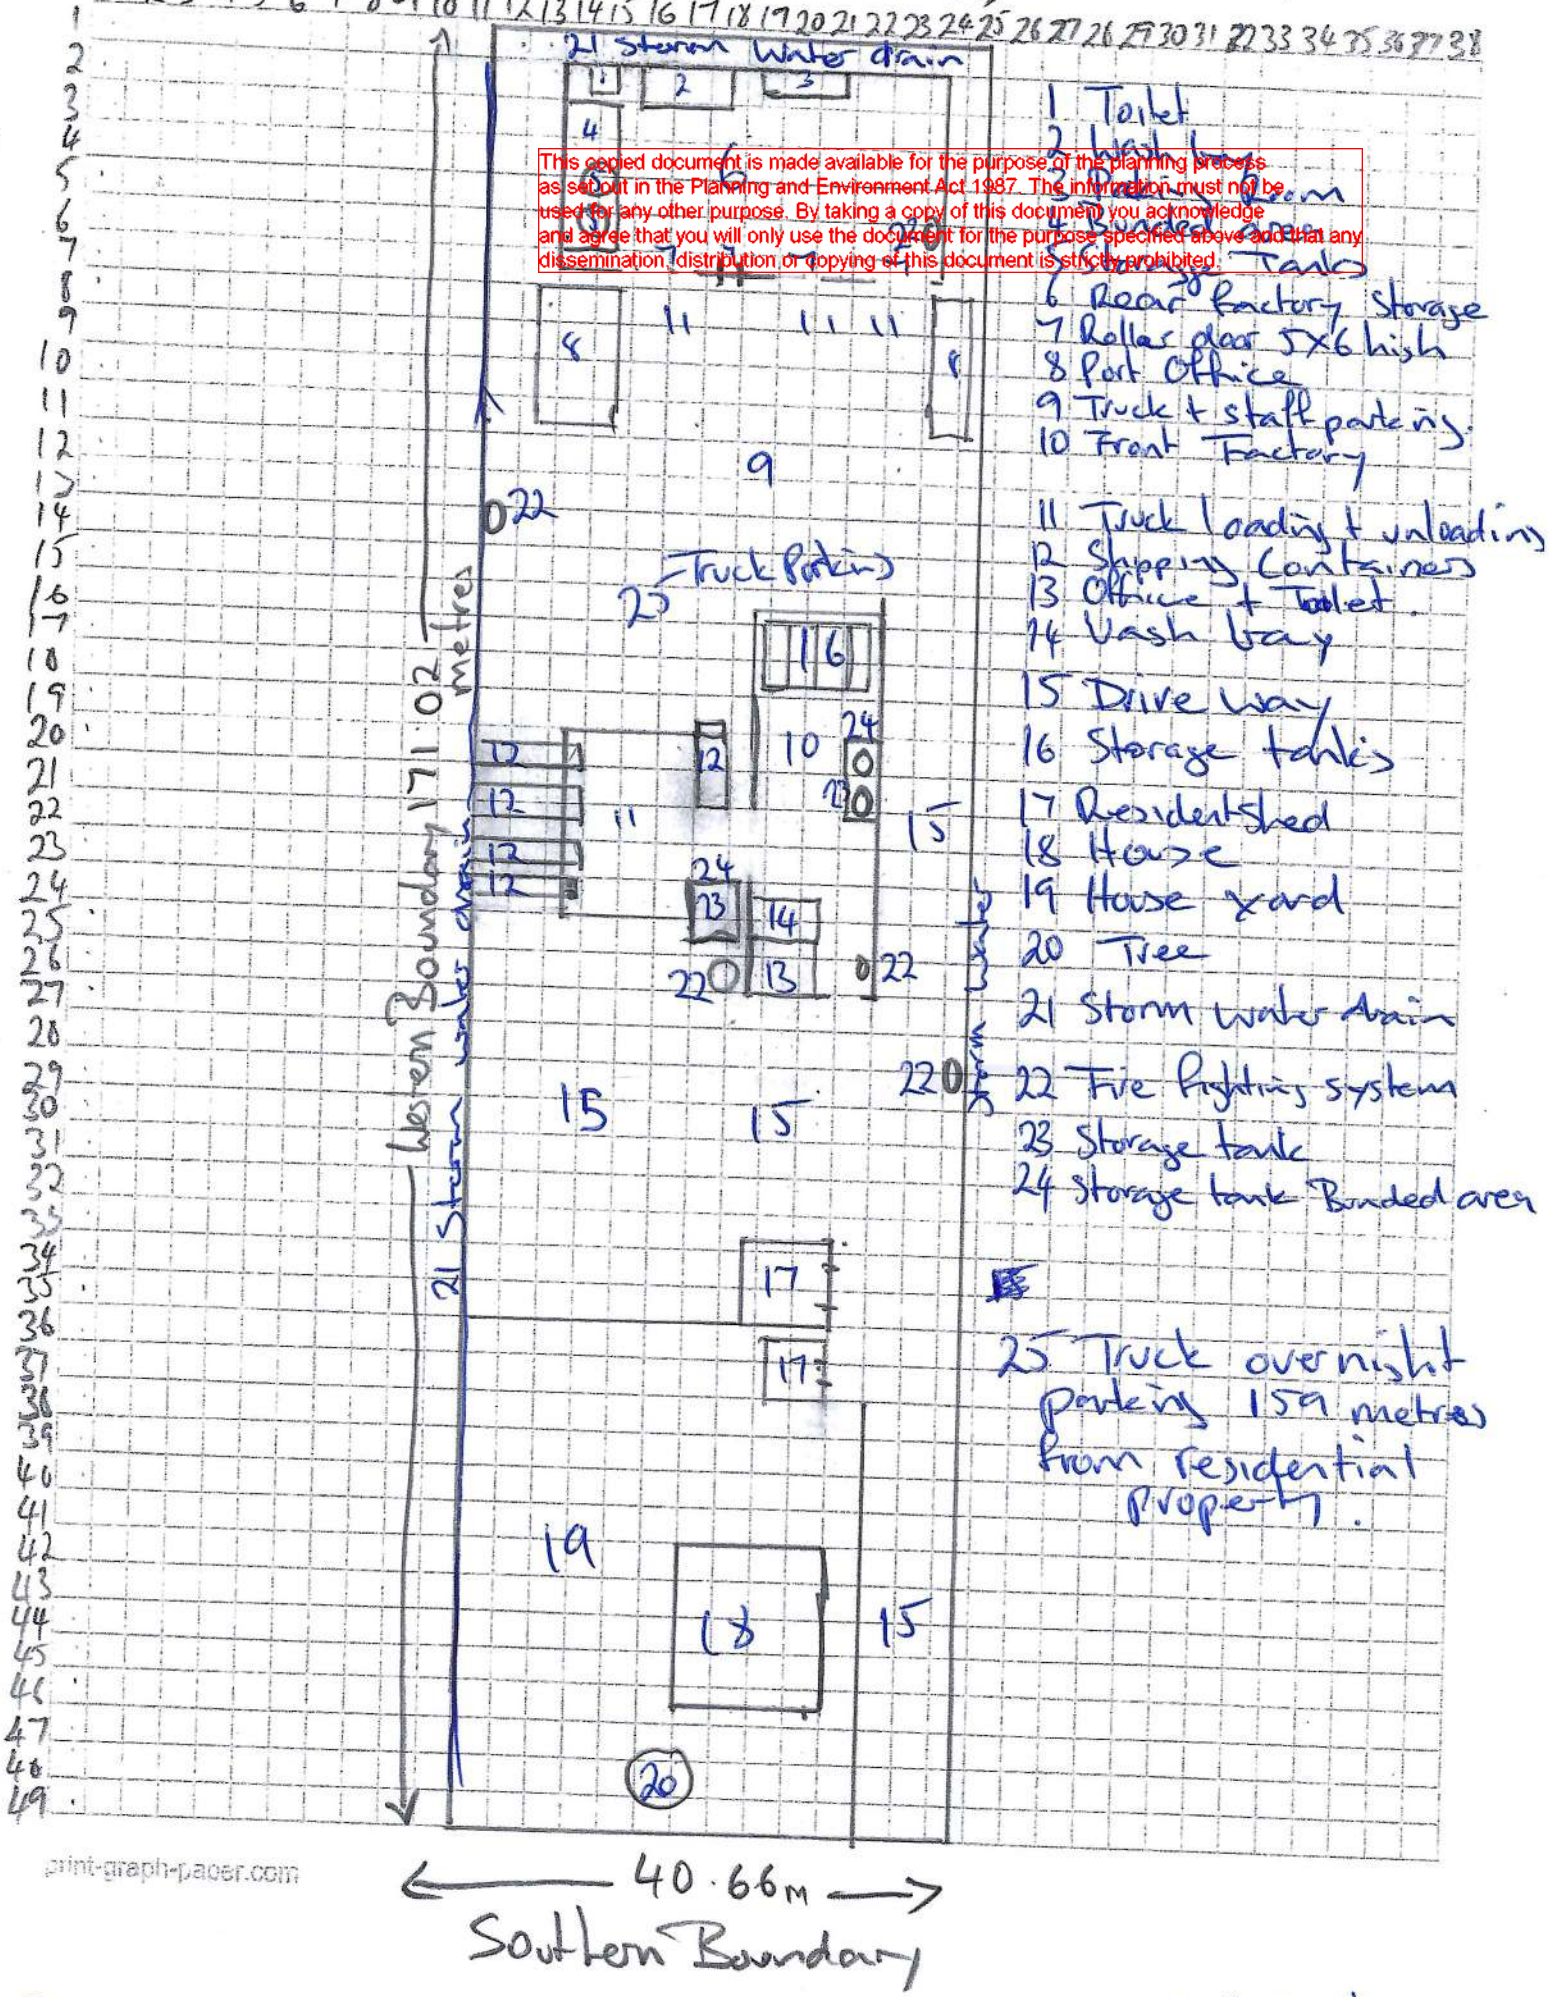 10 11 12 13 14 15 16 17 18 19 20 21 22 23 24 25 26 27 28 29 30 31 32 33 34 35 36 37 38
1
2
3
4
5
6
7
8
9
10
11
12
13
14
15
16
17
18
19
20
21
22
23
24
25
26
27
28
29
30
31
32
33
34
35
36
37
38
39
40
41
42
43
44
45
46
47
48
49
21 Storm Water drain
1 2 3
4
6
5
This copied document is made available for the purpose of the planning process
as set out in the Planning and Environment Act 1987. The information must not be
used for any other purpose. By taking a copy of this document you acknowledge
and agree that you will only use the document for the purpose specified above and that any
dissemination, distribution or copying of this document is strictly prohibited.
22
7 7 7
11 11 11
8 8
9
22
Truck Parking
25
16
24
12 12 10
12 11 23 15
12
12 24
23 14
22 13 22
22
15 15
17
17
19
18 15
20
Western Boundary 171.02 metres
21 Storm water drain
Storm water
1 Toilet
2 Wash bay
3 Room
4 Bunded area
5 Storage Tanks
6 Rear factory Storage
7 Roller door 5x6 high
8 Port Office
9 Truck + staff parking.
10 Front Factory
11 Truck loading + unloading
12 Shipping Containers
13 Office + Toilet.
14 Wash bay
15 Drive way
16 Storage tanks
17 Resident shed
18 House
19 House yard
20 Tree
21 Storm water drain
22 Fire fighting system
23 Storage tank
24 Storage tank Bunded area
25 Truck overnight
parking 159 metres
from residential
property.
print-graph-paper.com
40.66m
Southern Boundary